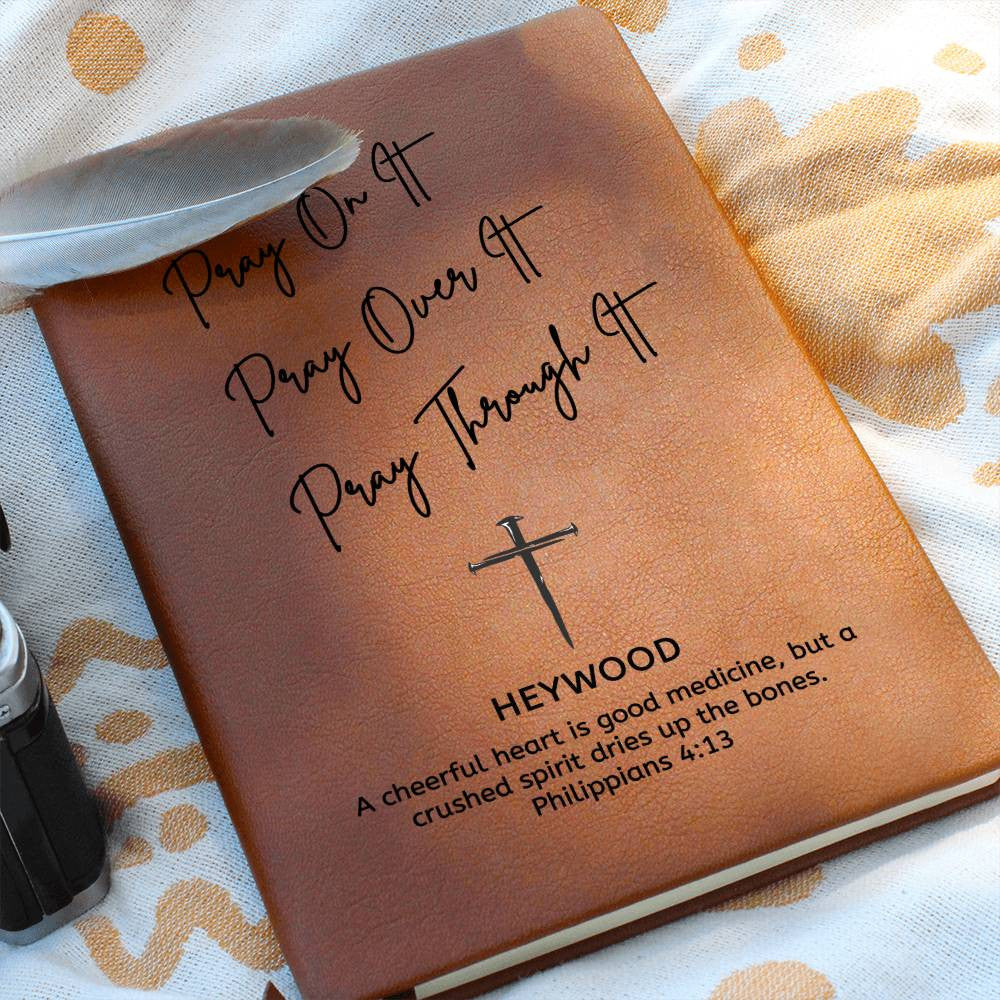 Pray On It
Pray Over It
Pray Through It
HEYWOOD
A cheerful heart is good medicine, but a
crushed spirit dries up the bones.
Philippians 4:13